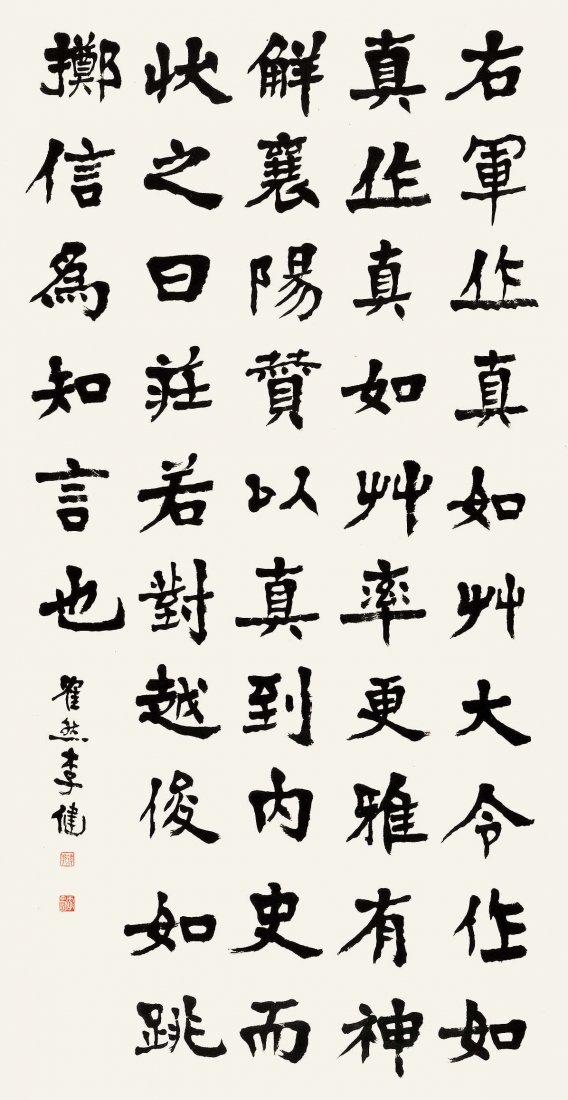 右軍作真如艸大令作如
真作真如艸率更雅有神
觧襄陽賛以真到內史而
狀之曰莊若對越俊如跳
擲信為知言也
瞿然李健